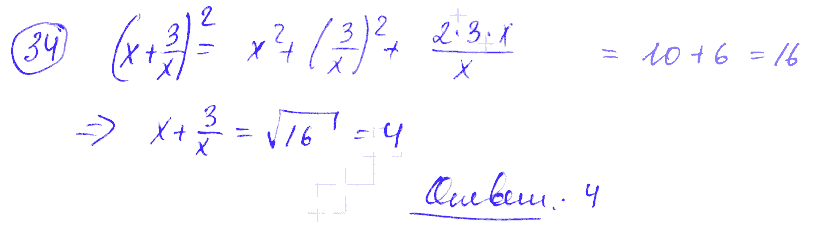 34 (x + 3/x)² = x² + (3/x)² + 2·3·x/x = 10 + 6 = 16
⇒ x + 3/x = √16 = 4
Ответ: 4